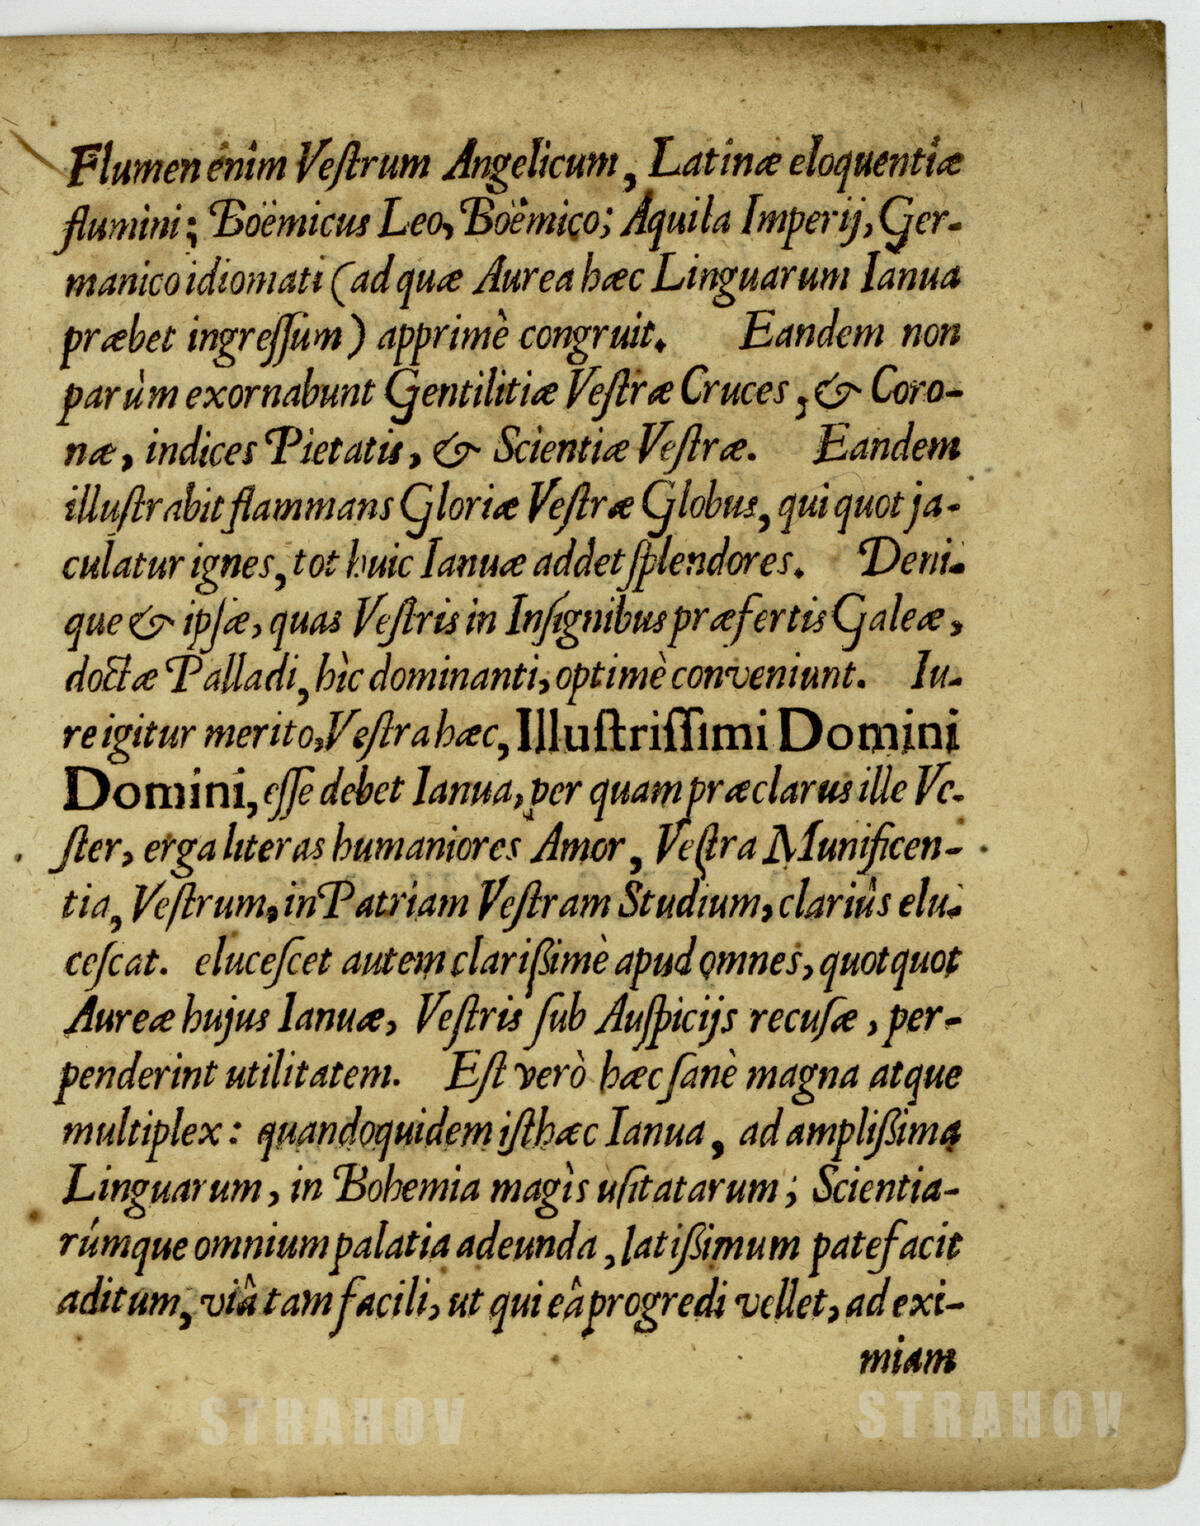 Flumen enim Veſtrum Angelicum, Latinæ eloquentiæ
flumini; Boëmicus Leo, Boëmico; Aquila Imperij, Ger-
manico idiomati (ad quæ Aurea hæc Linguarum Ianua
præbet ingreſſum) apprimè congruit. Eandem non
parùm exornabunt Gentilitiæ Veſtræ Cruces, & Coro-
næ, indices Pietatis, & Scientiæ Veſtræ. Eandem
illuſtrabit flammans Gloriæ Veſtræ Globus, qui quot ja-
culatur ignes, tot huic Ianuæ addet ſplendores. Deni-
que & ipſæ, quas Veſtris in Inſignibus præfertis Galeæ,
doctæ Palladi, hìc dominanti, optimè conveniunt. Iu-
re igitur merito, Veſtra hæc, Illuſtriſſimi Domini
Domini, eſſe debet Ianua, per quam præclarus ille Ve-
ſter, erga literas humaniores Amor, Veſtra Munificen-
tia, Veſtrum, in Patriam Veſtram Studium, clariùs elu-
ceſcat. eluceſcet autem clarißimè apud omnes, quotquot
Aureæ hujus Ianuæ, Veſtris ſub Auſpicijs recuſæ, per-
penderint utilitatem. Eſt verò hæc ſanè magna atque
multiplex: quandoquidem iſthæc Ianua, ad amplißima
Linguarum, in Bohemia magìs uſitatarum; Scientia-
rúmque omnium palatia adeunda, latißimum patefacit
aditum, viâ tam facili, ut qui eâ progredi vellet, ad exi-
miam
STRAHOV STRAHOV